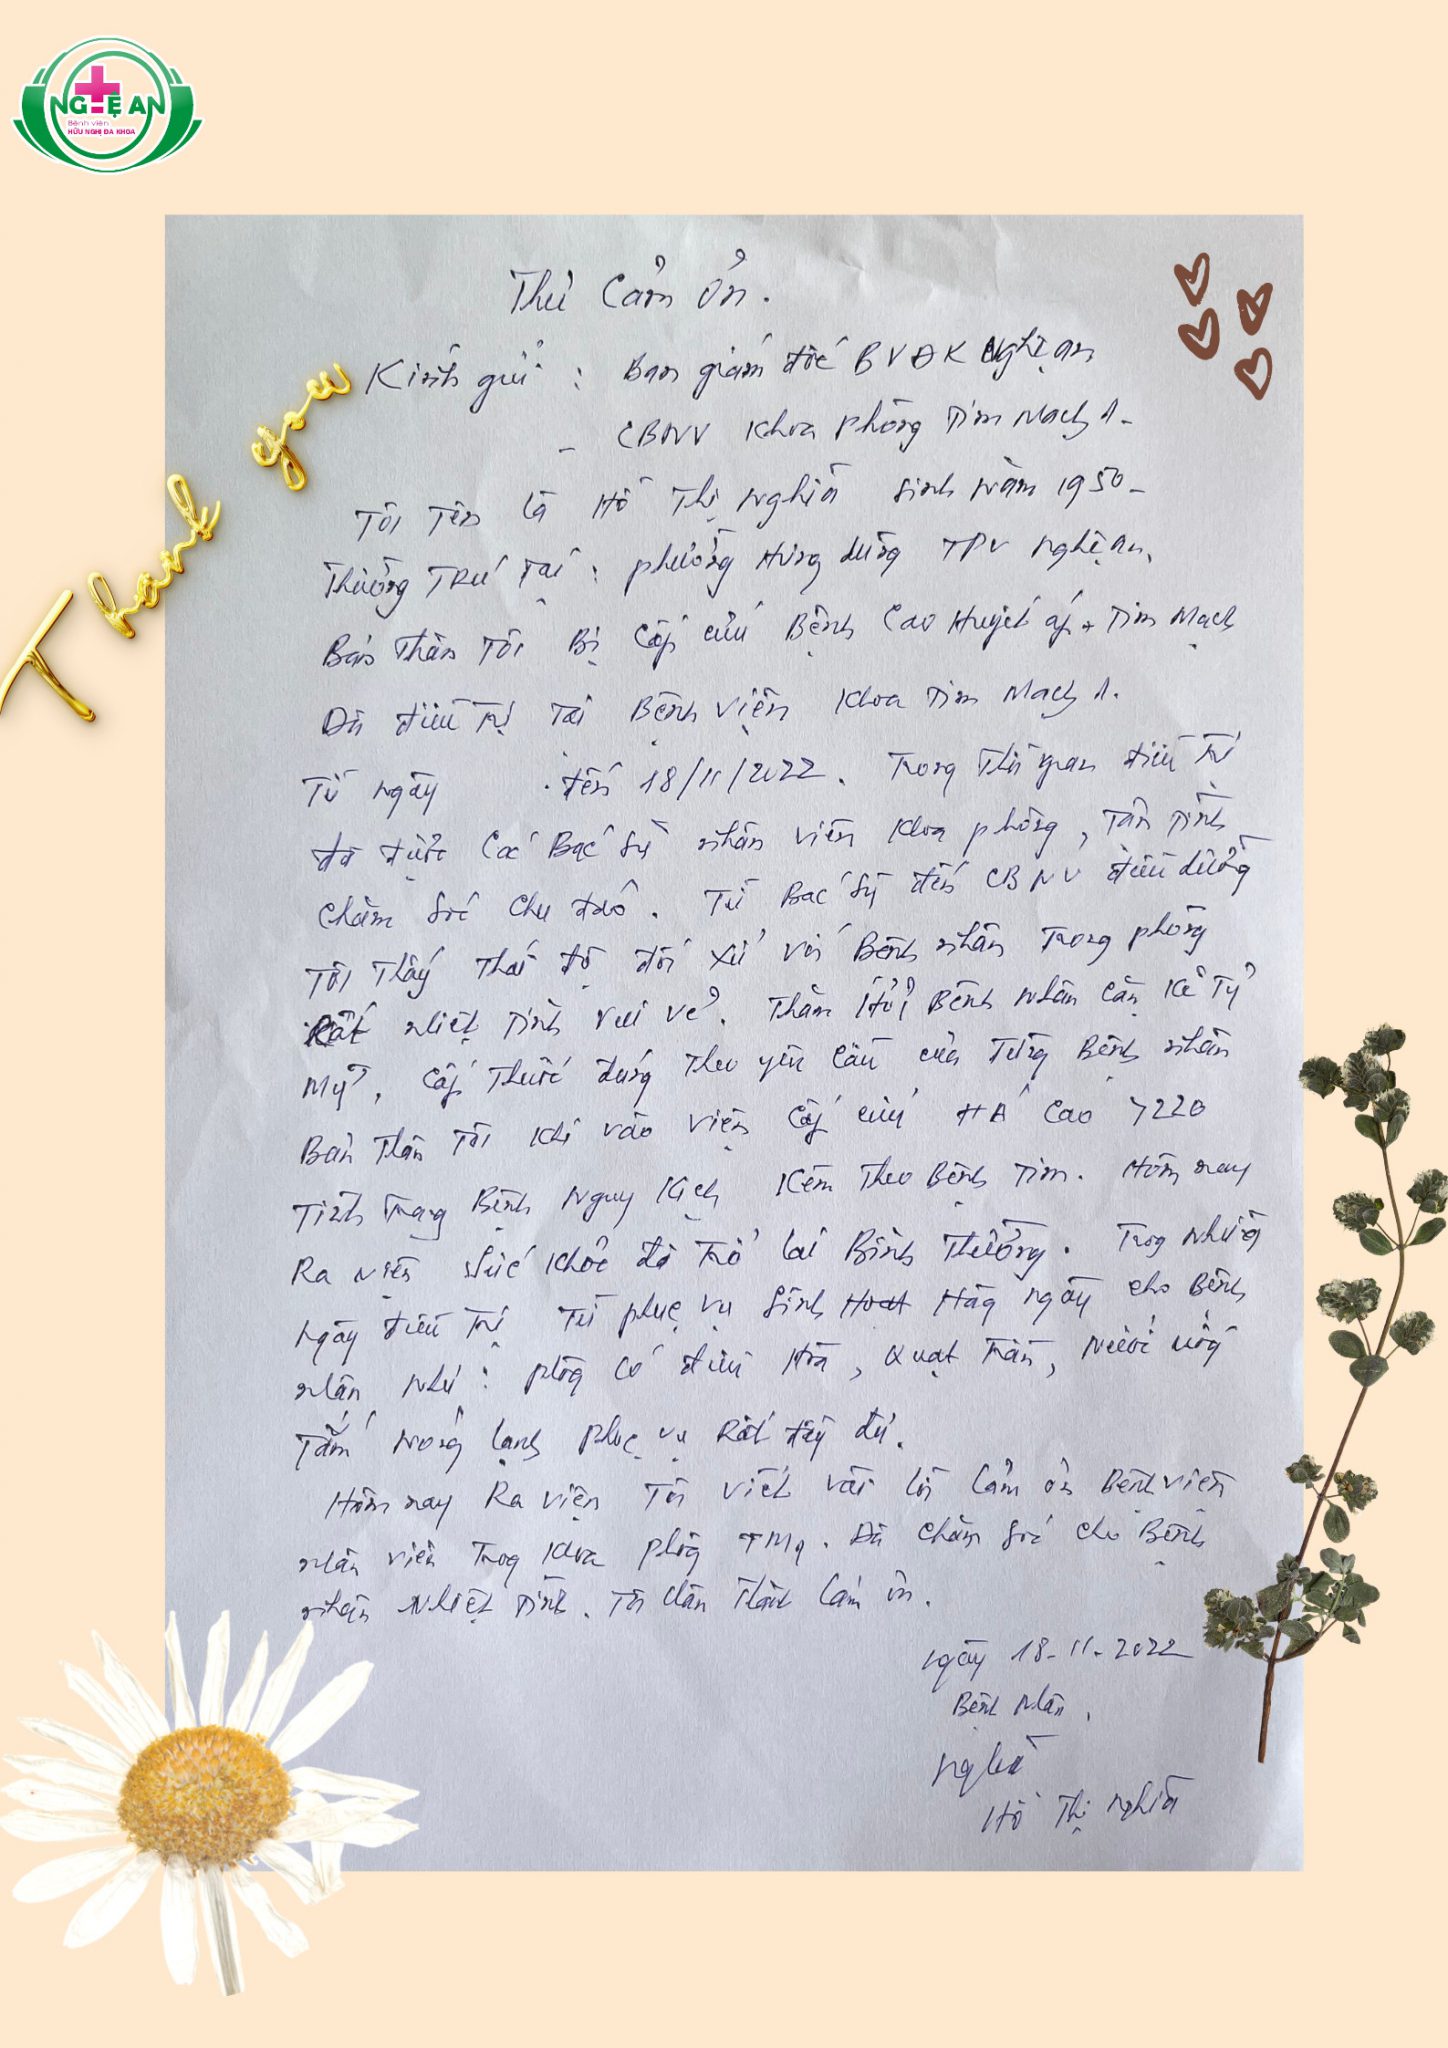 NGHỆ AN
Bệnh viện
HỮU NGHỊ ĐA KHOA
Thank you
Thư Cảm ơn.
Kính gửi : Ban giám đốc BVĐK Nghệ an
- CBNV Khoa phòng Tim Mạch 1.
Tôi Tên là Hồ Thị Nghĩa sinh năm 1950-
Thường Trú Tại : phường Hưng dũng TPV Nghệ an.
Bản Thân Tôi Bị Cấp cứu Bệnh Cao Huyết áp + Tim Mạch
Đã điều Trị Tại Bệnh viện Khoa Tim Mạch 1.
Từ ngày đến 18/11/2022. Trong Thời gian điều Trị
đã được Các Bác sỹ nhân viên Khoa phòng, Tận Tình
chăm sóc chu đáo. Từ Bác sỹ đến CBNV điều dưỡng
Tôi Thấy Thái độ đối xử với Bệnh nhân Trong phòng
Rất nhiệt Tình vui vẻ. Thăm Hỏi Bệnh nhân Cặn Kẽ Tỷ
Mỹ, Cấp Thuốc đúng Theo yêu Cầu của Từng Bệnh nhân
Bản Thân Tôi Khi vào viện Cấp cứu HA Cao 220
Tình Trạng Bệnh Nguy Kịch Kèm Theo Bệnh Tim. Hôm nay
Ra viện sức Khỏe đã Trở lại Bình Thường. Trong Những
ngày điều Trị Từ phục vụ Sinh Hoạt Hàng ngày cho Bệnh
nhân Như : phòng Có điều Hòa, Quạt Trần, Nước uống
Tắm nóng lạnh phục vụ Rất đầy đủ.
Hôm nay Ra viện Tôi viết vài lời Cảm ơn Bệnh viện
nhân viên Trong Khoa phòng TM1. Đã chăm sóc cho Bệnh
nhân Nhiệt Tình. Tôi Chân Thành Cám ơn.
ngày 18-11-2022
Bệnh nhân,
Nghĩa
Hồ Thị Nghĩa